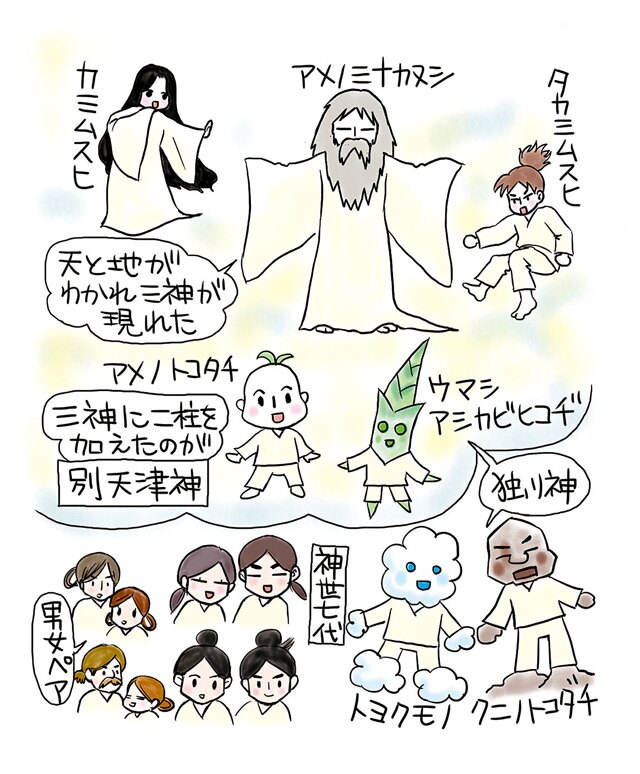 カミムスヒ
アメノミナカヌシ
タカミムスヒ
天と地が
わかれ三神が
現れた
アメノトコタチ
三神に二柱を
加えたのが
別天津神
ウマシ
アシカビヒコヂ
独り神
神世七代
男女ペア
トヨクモノ
クニノトコダチ